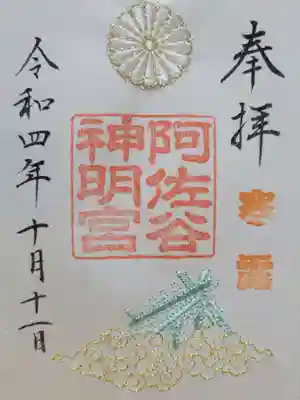 奉拝
寒露
阿佐谷
神明宮
令和四年十月十一日